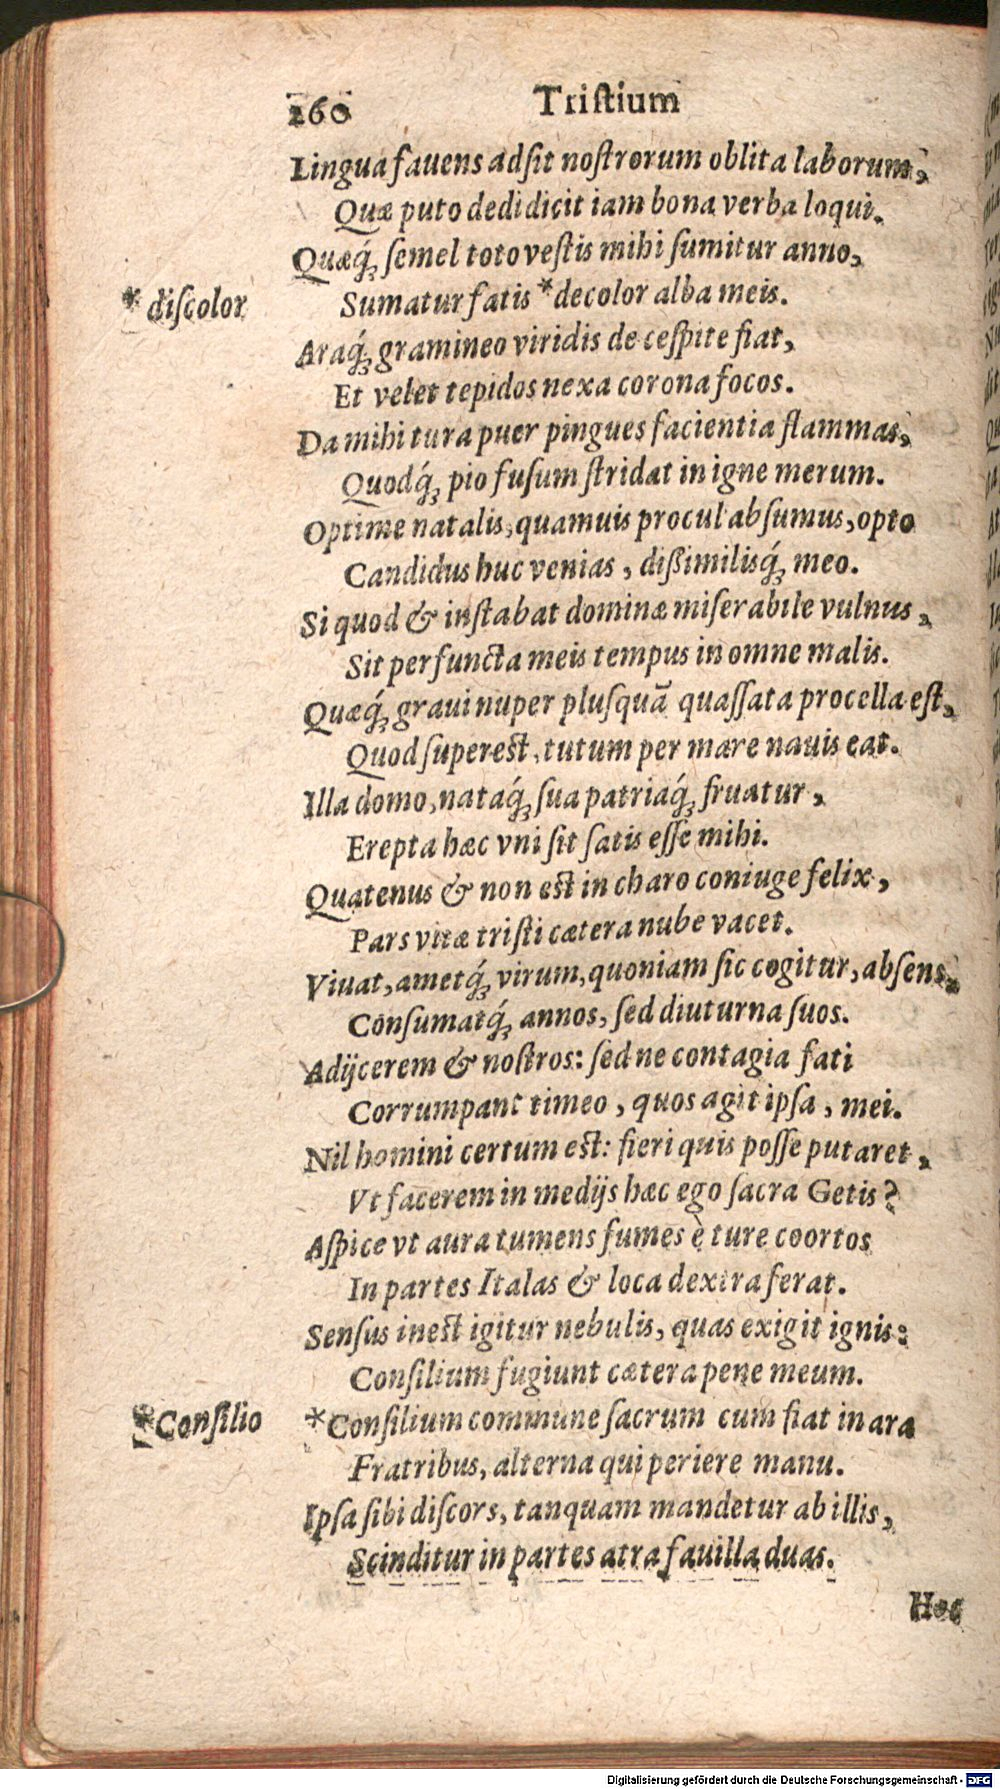 260 Tristium
Lingua fauens adsit nostrorum oblita laborum,
Quæ puto dedidicit iam bona verba loqui.
Quæq́; semel toto vestis mihi sumitur anno,
* discolor
Sumatur fatis *decolor alba meis.
Araq́; gramineo viridis de cespite fiat,
Et velet tepidos nexa corona focos.
Da mihi tura puer pingues facientia flammas,
Quodq́; pio fusum stridat in igne merum.
Optime natalis, quamuis procul absumus, opto
Candidus huc venias, dißimilisq́; meo.
Si quod & instabat dominæ miserabile vulnus,
Sit perfuncta meis tempus in omne malis.
Quæq́; graui nuper plusquā quassata procella est,
Quod superest, tutum per mare nauis eat.
Illa domo, nataq́; sua patriaq́; fruatur,
Erepta hæc vni sit satis esse mihi.
Quatenus & non est in charo coniuge felix,
Pars vitæ tristi cætera nube vacet.
Viuat, ametq́; virum, quoniam sic cogitur, absens,
Consumatq́; annos, sed diuturna suos.
Adijcerem & nostros: sed ne contagia fati
Corrumpant timeo, quos agit ipsa, mei.
Nil homini certum est: fieri quis posse putaret,
Vt facerem in medijs hæc ego sacra Getis?
Aspice vt aura tumens fumes è ture coortos
In partes Italas & loca dextra ferat.
Sensus inest igitur nebulis, quas exigit ignis:
Consilium fugiunt cætera pene meum.
*Consilio
*Consilium commune sacrum cum fiat in ara
Fratribus, alterna qui periere manu.
Ipsa sibi discors, tanquam mandetur ab illis,
Scinditur in partes atra fauilla duas.
Hoc
Digitalisierung gefördert durch die Deutsche Forschungsgemeinschaft - DFG